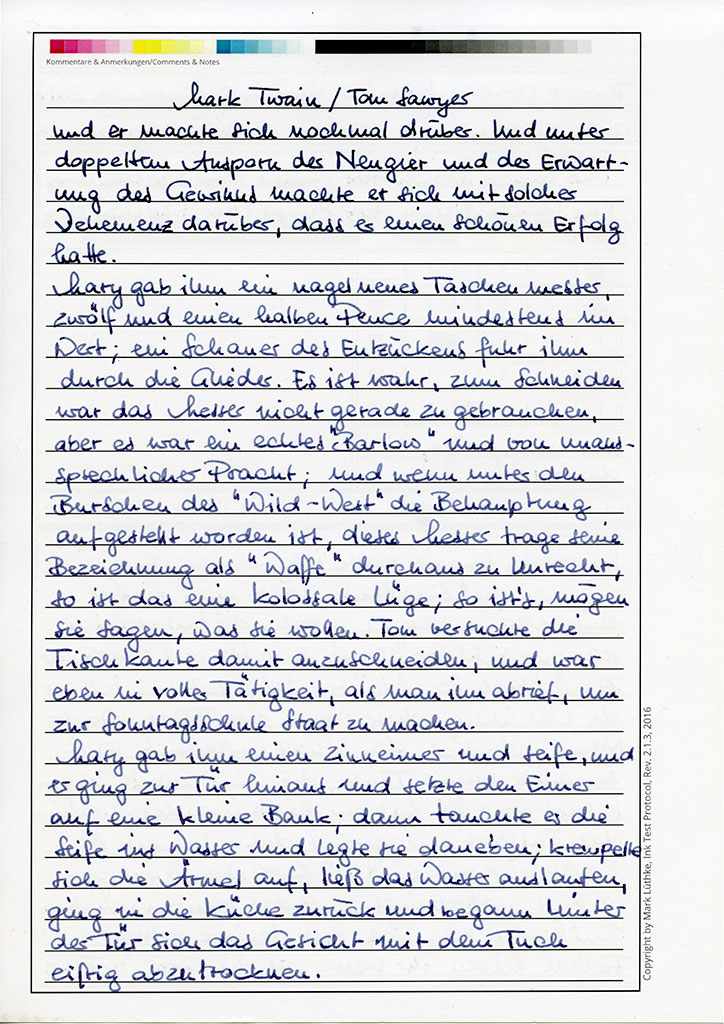 Kommentare & Anmerkungen/Comments & Notes
Mark Twain / Tom Sawyer
und er machte sich nochmal drüber. Und unter
doppeltem Ansporn der Neugier und der Erwart-
ung des Gewinns machte er sich mit solcher
Vehemenz darüber, dass er einen schönen Erfolg
hatte.
Mary gab ihm ein nagelneues Taschenmesser,
zwölf und einen halben Pence mindestens im
Wert; ein Schauer des Entzückens fuhr ihm
durch die Glieder. Es ist wahr, zum Schneiden
war das Messer nicht gerade zu gebrauchen,
aber es war ein echtes "Barlow" und von unaus-
sprechlicher Pracht; und wenn unter den
Burschen des "Wild-West" die Behauptung
aufgestellt worden ist, dieses Messer trage seine
Bezeichnung als "Waffe" durchaus zu Unrecht,
so ist das eine kolossale Lüge; so ist's, mögen
sie sagen, was sie wollen. Tom versuchte die
Tischkante damit anzuschneiden, und war
eben in voller Tätigkeit, als man ihn abrief, um
zur Sonntagsschule Staat zu machen.
Mary gab ihm einen Zinneimer und Seife, und
er ging zur Tür hinaus und setzte den Eimer
auf eine kleine Bank; dann tauchte er die
Seife ins Wasser und legte sie daneben; krempelte
sich die Ärmel auf, ließ das Wasser auslaufen,
ging in die Küche zurück und begann hinter
der Tür sich das Gesicht mit dem Tuch
eifrig abzutrocknen.
Copyright by Mark Lüthke, Ink Test Protocol, Rev. 2.1.3, 2016